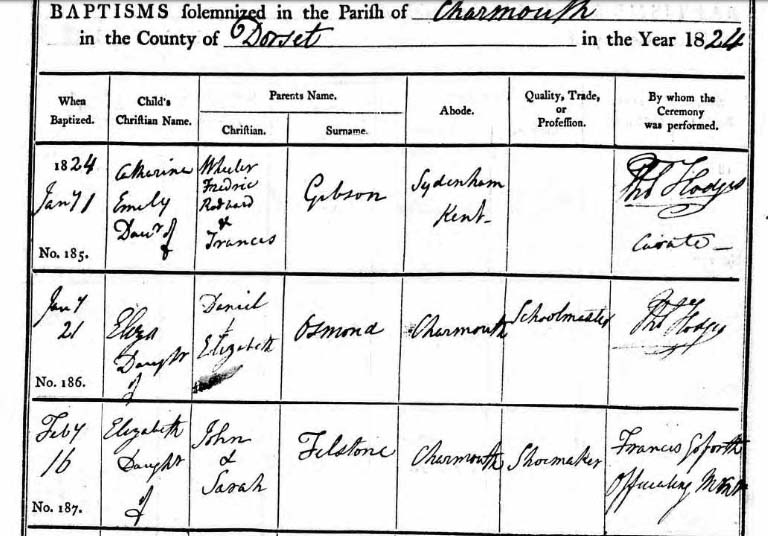 BAPTISMS solemnized in the Parish of Charmouth
in the County of Dorset in the Year 1824
When Baptized.
Child's Christian Name.
Parents Name.
Christian.
Surname.
Abode.
Quality, Trade, or Profession.
By whom the Ceremony was performed.
1824
Jany 1
No. 185.
Catherine
Emily
Dau'r of
Wheeler
Fredric
&
Frances
Gibson
Sydenham
Kent
Thos Hodges
Curate
Jany
21
No. 186.
Eliza
Daughtr
of
Daniel
&
Elizabeth
Osmond
Charmouth
Schoolmaster
Thos Hodges
Feby
16
No. 187.
Elizabeth
Daughtr
of
John
&
Sarah
Felstone
Charmouth
Shoemaker
Francis Goforth
Officiating